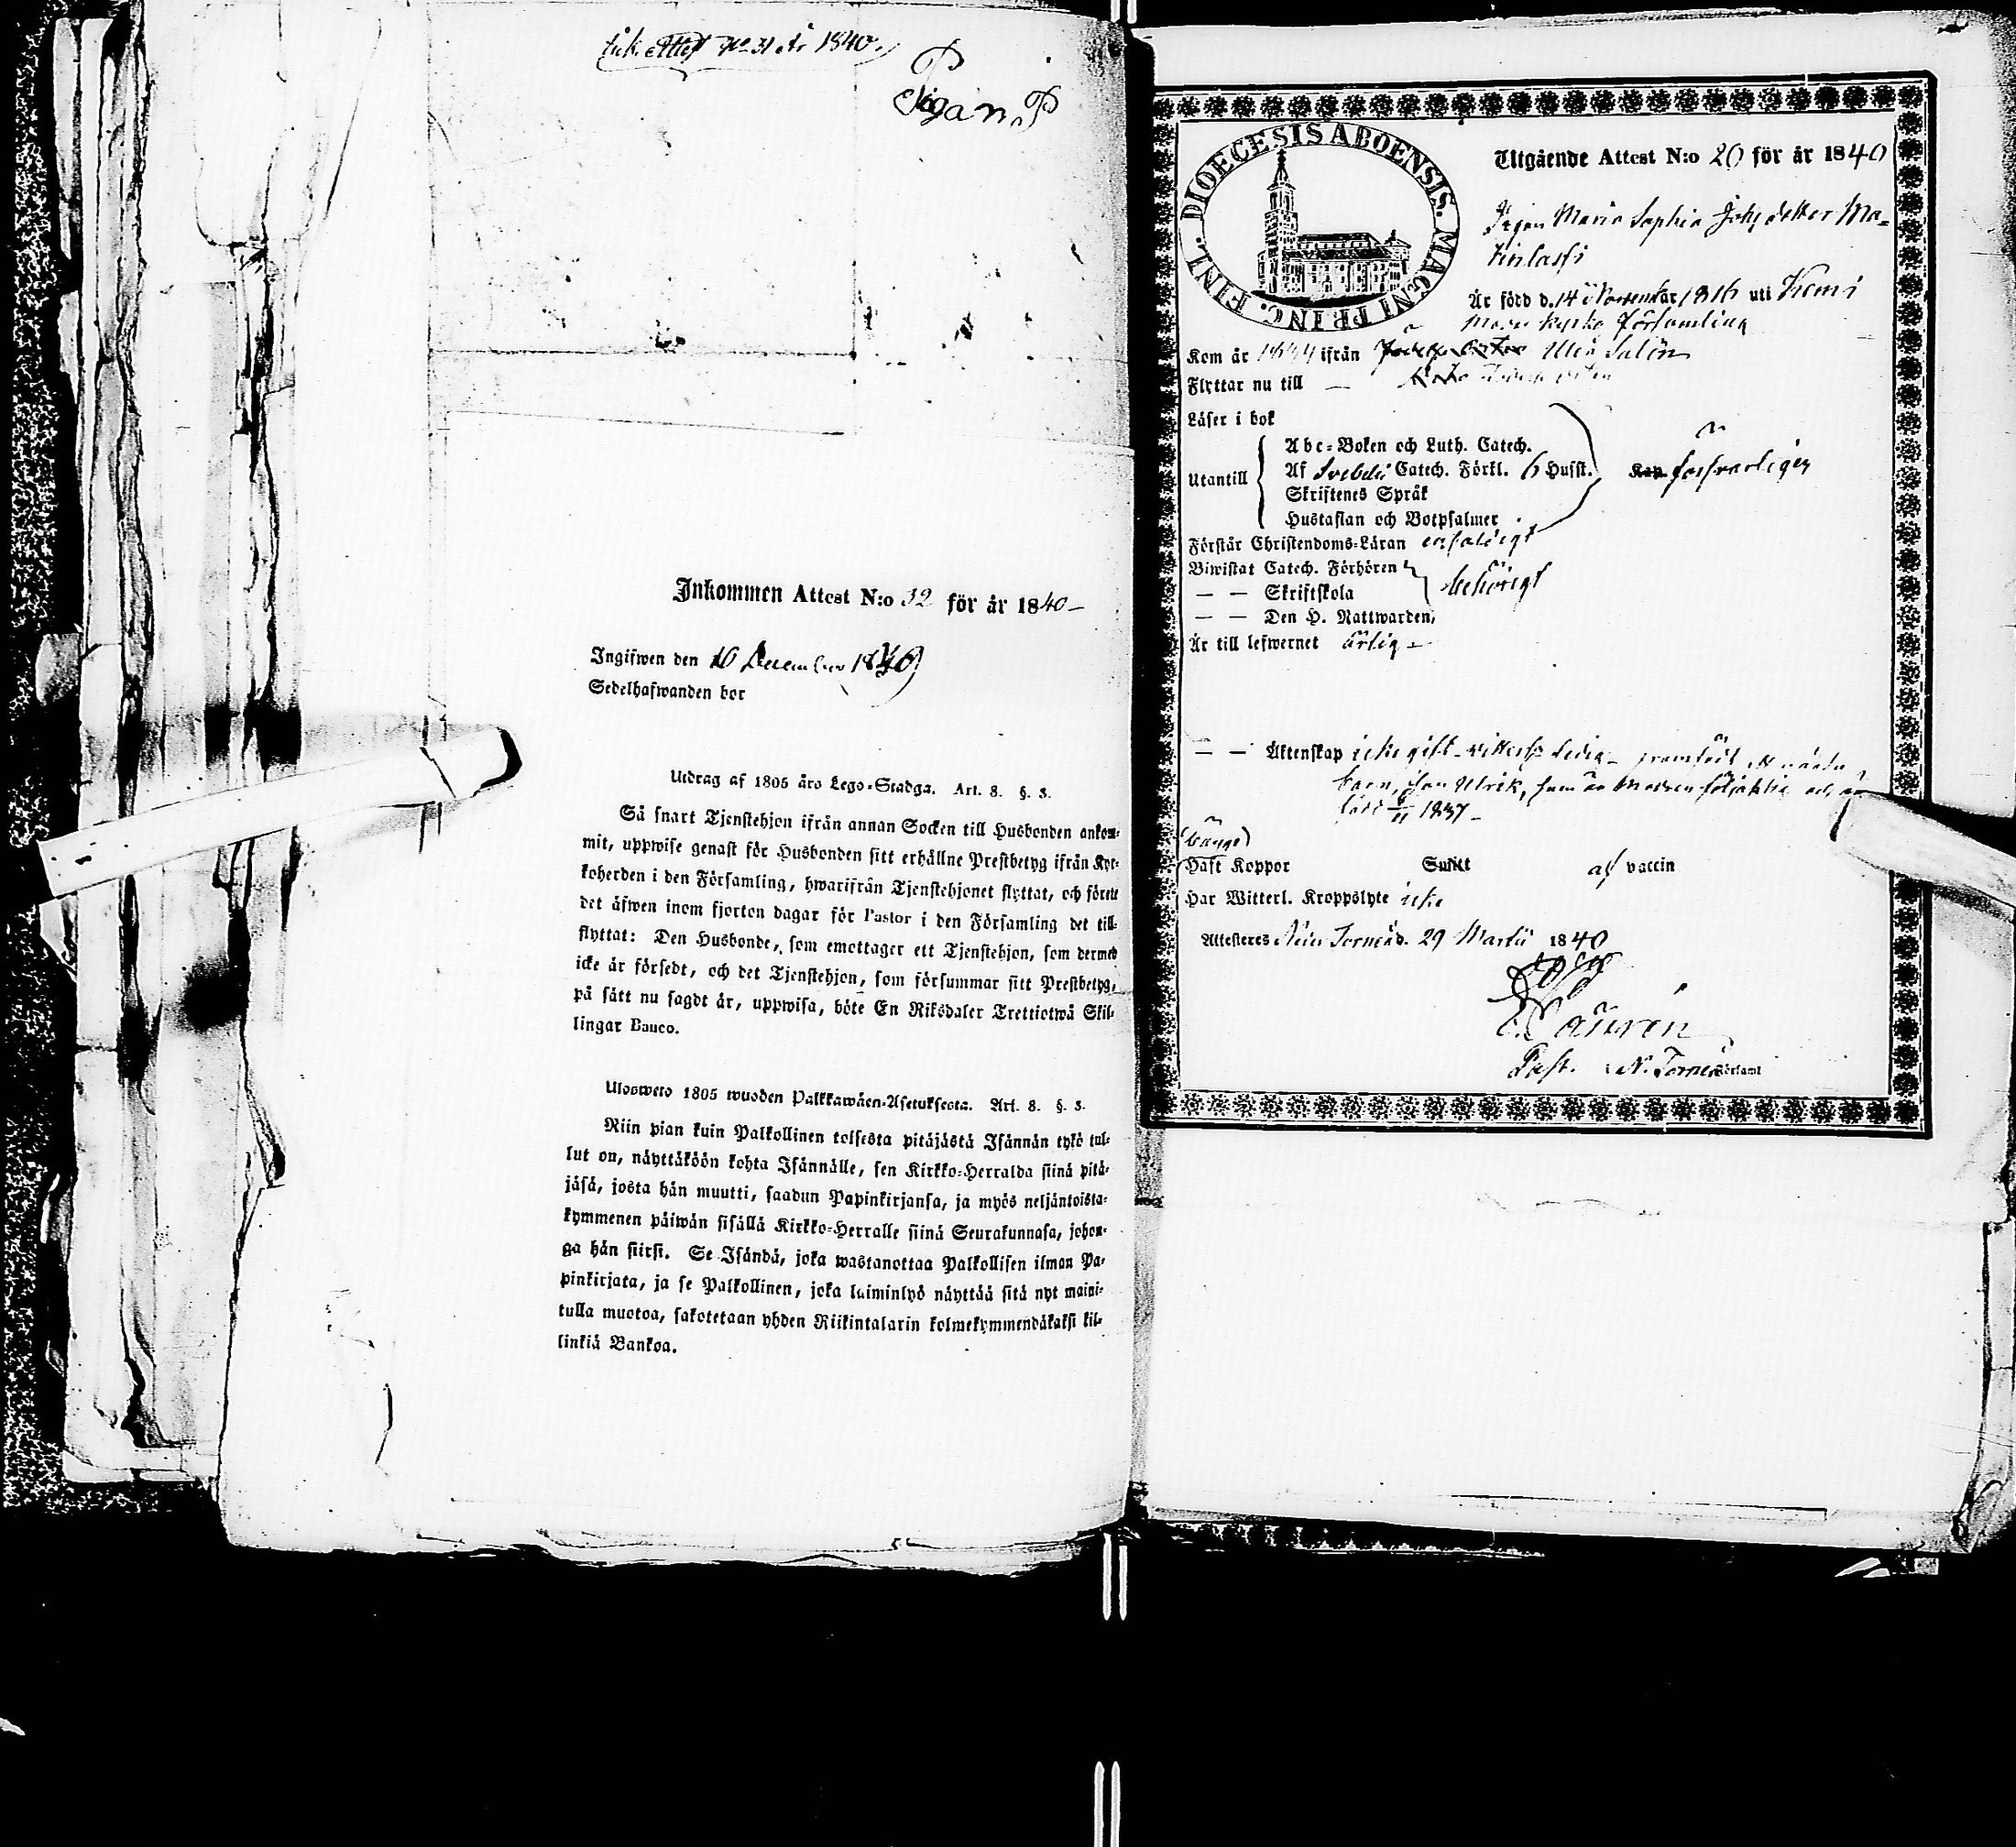 Ink. Attest No 31 År 1840.
Pigan
Inkommen Attest N:o 32 för år 1840
Ingifwen den 10 December 1840
Sedelhafwanden bor
Utdrag af 1805 års Lego-Stadga. Art. 8. §. 3.
Så snart Tjenstehjon ifrån annan Socken till Husbonden ankom-
mit, uppwise genast för Husbonden sitt erhållne Prestbetyg ifrån Kyr-
koherden i den Församling, hwarifrån Tjenstehjonet flyttat, och förete
det äfwen inom fjorton dagar för Pastor i den Församling det till-
flyttat: Den Husbonde, som emottager ett Tjenstehjon, som dermed
icke är försedt, och det Tjenstehjon, som försummar sitt Prestbetyg,
på sätt nu sagdt är, uppwisa, böte En Riksdaler Trettiotwå Skil-
lingar Banco.
Ulosweto 1805 wuoden Palkkawäen-Asetuksesta. Art. 8. §. 3.
Niin pian kuin Palkollinen toisesta pitäjästä Isännän tykö tul-
lut on, näyttäköön kohta Isännälle, sen Kirkko-Herralda siinä pitä-
jäsä, josta hän muutti, saadun Papinkirjansa, ja myös neljäntoista-
kymmenen päiwän sisällä Kirkko-Herralle siinä Seurakunnasa, johon-
ga hän siirsi. Se Isändä, joka wastanottaa Palkollisen ilman Pa-
pinkirjata, ja se Palkollinen, joka laiminlyö näyttää sitä nyt maini-
tulla muotoa, sakotetaan yhden Riikintalarin kolmekymmendäkaksi kil-
linkiä Bankoa.
DIOECESIS ABOENSIS. MAGNI PRINC. FINL.
Utgående Attest N:o 20 för år 1840
Pigan Maria Sophia Johsdotter Ma-
tinlassi
Är född d. 14 November 1816 uti Kemi
Moder kyrko församling
Kom år ifrån Uleå Salön
Flyttar nu till —
Läser i bok
Abc-Boken och Luth. Catech.
Utantill Af Svebelii Catech. Förkl. 6 Husst. försvarligen
Skriftenes Språk
Hustaflan och Botpsalmer
Förstår Christendoms-Läran enfaldigt
Biwistat Catech. Förhören
— — Skriftskola behörigt
— — Den H. Nattwarden,
Är till lefwernet ärlig —
— — Äktenskap icke gift - ledig - framfödt
barn, Jan Ulrik, som är Modren följaktig och är
född 1837 -
Haft Koppor af vaccin
Har Witterl. Kroppslyte icke
Attesteres Neder Torneå d. 29 Martii 1840
Past. N. Torneå Församl